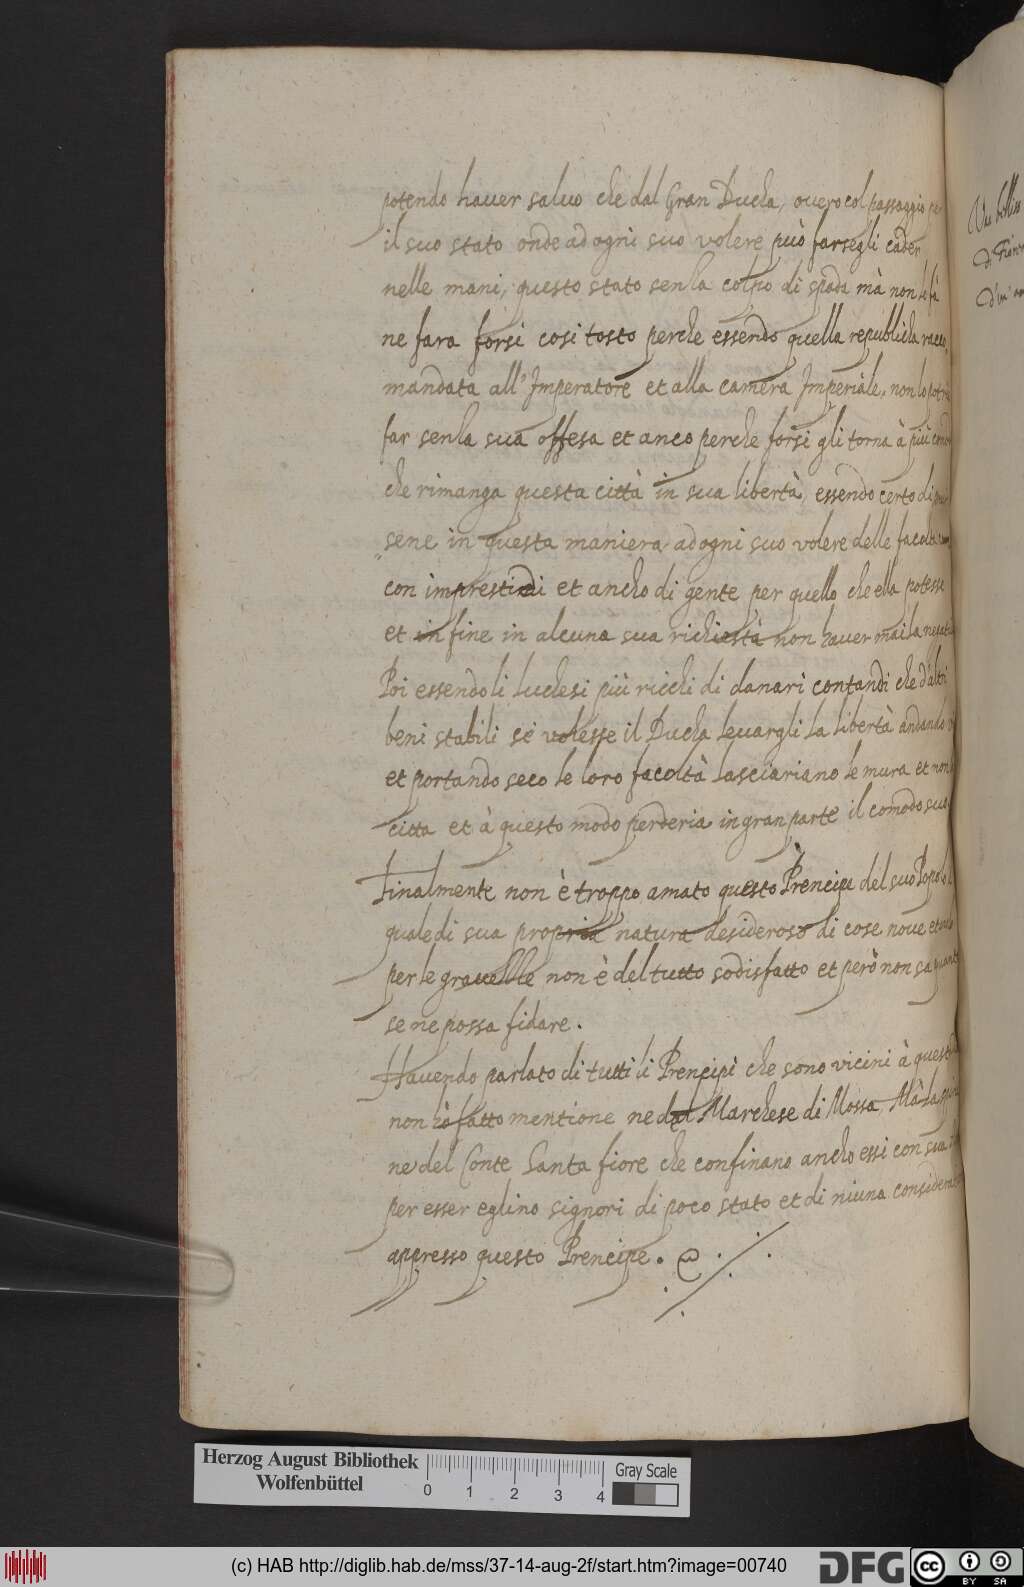 potendo hauer saluo che dal Gran Ducha, ouero col passaggio per
il suo stato onde ad ogni suo volere può farsegli cader
nelle mani, questo stato senza colpo di spada mà non lo fà
ne fara forsi cosi tosto perche essendo quella republicha racco,
mandata all'Imperatore et alla camera Imperiale, non lo potria
far senza sua offesa et anco perche forsi gli torna à più
che rimanga questa città in sua libertà, essendo certo di
sene in questa maniera ad ogni suo volere delle facoltà
con imprestidi et ancho di gente per quello che ella potesse
et in fine in alcuna sua richiesta non hauer mai la negatiua
Poi essendo li luchesi più ricchi di danari contandi che d'altri
beni stabili se volesse il Ducha leuargli la libertà andando
et portando seco le loro facoltà lasciariano le mura et non
citta et à questo modo perderia in gran parte il comodo suo
Finalmente non è troppo amato questo Prencipe del suo Popolo
quale di sua propria natura desideroso di cose noue et
per le grauezze non è del tutto sodisfatto et però non sa quanto
se ne possa fidare.
Hauendo parlato di tutti li Prencipi che sono vicini à questo
non hò fatto mentione ne del Marchese di Massa, Malaspina
ne del Conte Santa fiore che confinano ancho essi con sua
per esser eglino signori di poco stato et di niuna
appresso questo Prencipe.
di
Herzog August Bibliothek
Wolfenbüttel
0 1 2 3 4
Gray Scale
(c) HAB http://diglib.hab.de/mss/37-14-aug-2f/start.htm?image=00740
DFG
cc BY SA